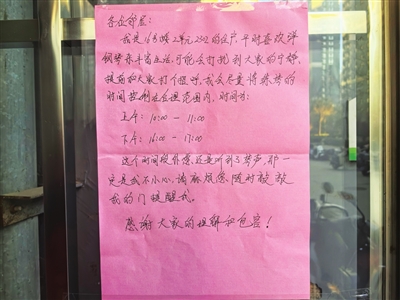 各位邻居：
我是16号楼2单元2502的住户，平时喜欢弹
钢琴来丰富生活，可能会打扰到大家的宁静，
提前和大家打个招呼，我会尽量将练琴的
时间控制在合理范围内，时间为：
上午：10:00 — 11:00
下午：16:00 — 17:00
这个时间段外您还是听到琴声，那一
定是我不小心，请麻烦您随时敲敲
我的门提醒我。
感谢大家的理解和包容！